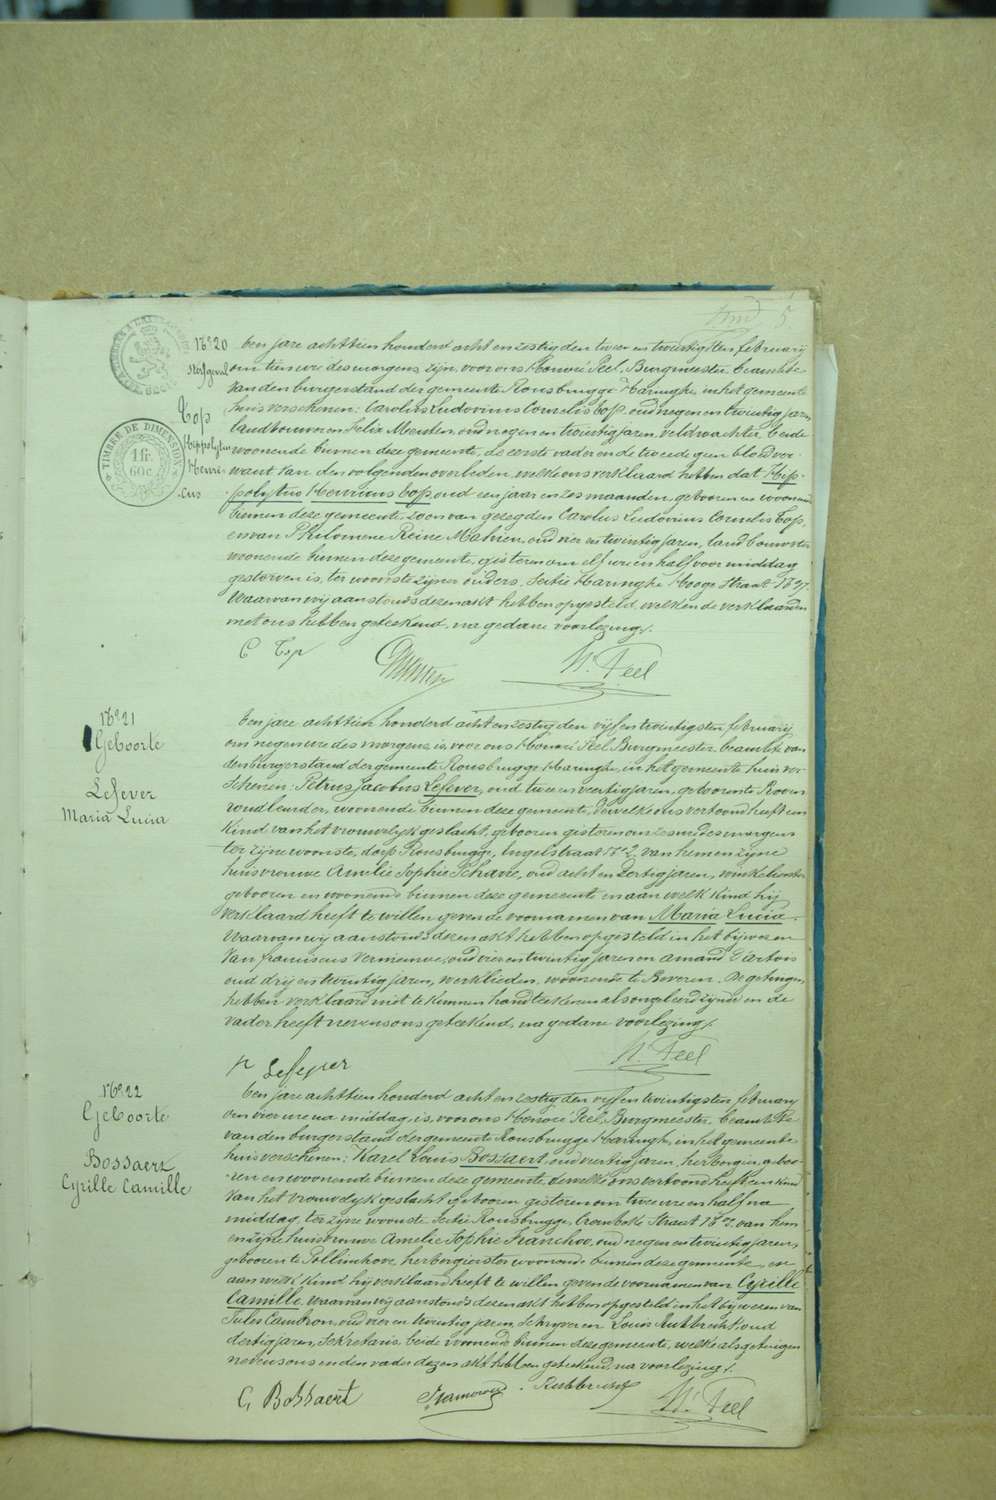 5
N° 20
Sterfgeval
Top
Hippolytus
Henri-
cus
TIMBRE DE DIMENSION
1 fr.
60 c.
Den jare achttien honderd acht en zestig den twee en twintigsten february
om tien ure des morgens zijn voor ons Honoré Feel, Burgmeester beambte
van den burgerstand der gemeente Rousbrugge-Haringhe in het gemeente
huis verschenen: Carolus Ludovicus Cornelis Top, oud negen en twintig jaren
landbouwer en Felix Meesten, oud negen en twintig jaren, veldwachter, beide
woonende binnen deze gemeente, de eerste vader en de tweede geen bloedver
want van den volgenden overleden, welke ons verklaard hebben dat Hip-
polytus Henricus Top, oud een jaar en zes maanden, gebooren en woonende
binnen deze gemeente, zoon van gezegden Carolus Ludovicus Cornelis Top,
en van Philomene Reine Mahieu, oud vier en twintig jaren, landbouwster
woonende binnen deze gemeente, gisteren om elf ure en half voor middag
gestorven is, ter woonste zijner ouders, sectie Haringhe Hooge Straat N° 27.
Waarvan wij aanstonds dezen akt hebben opgesteld, welken de verklaarders
met ons hebben geteekend, na gedane voorlezing.
C Top
H. Feel
N° 21
Geboorte
Lefever
Maria Lucia
Den jare achttien honderd acht en zestig den vijf en twintigsten february
om negen ure des morgens, is voor ons Honoré Feel, Burgmeester beambte van
den burgerstand der gemeente Rousbrugge-Haringhe, in het gemeente huis ver-
schenen: Petrus Jacobus Lefever, oud twee en veertig jaren,
woonende binnen deze gemeente, dewelke ons vertoond heeft een
kind van het vrouwelijk geslacht, gebooren gisteren om zes ure des morgens
ter zijne woonste, dorp Rousbrugge, Ingelstraat N° 2, van hem en zijne
huisvrouwe Amelie Sophie Schave, oud acht en dertig jaren, winkelierster
gebooren en woonende binnen deze gemeente en aan welk kind hij
verklaard heeft te willen geven de voornamen van Maria Lucia.
Waarvan wij aanstonds dezen akt hebben opgesteld in het bijwezen
van Franciscus Vermeuwe, oud vier en twintig jaren en Amand
oud drij en twintig jaren, werklieden, woonende te Beveren. De getuigen
hebben verklaard niet te kunnen handteekenen als ongeleerd zijnde en de
vader heeft nevens ons geteekend, na gedane voorlezing.
H. Feel
P Lefever
N° 22
Geboorte
Bossaert
Cyrille Camille
Den jare achttien honderd acht en zestig den vijf en twintigsten february
om vier ure na middag, is voor ons Honoré Feel, Burgmeester, beambte
van den burgerstand der gemeente Rousbrugge-Haringhe, in het gemeente
huis verschenen: Karel Louis Bossaert, oud veertig jaren, herbergier, geboo-
ren en woonende binnen deze gemeente, dewelke ons vertoond heeft een kind
van het vrouwelijk geslacht gebooren gisteren om twee ure en half na
middag, ter zijne woonste sectie Rousbrugge, Crombeke Straat N° 2, van hem
en zijne huisvrouwe Amelie Sophie Franchoo, oud negen en twintig jaren,
gebooren te Pollinchove herbergierster woonende binnen deze gemeente, en
aan welk kind hij verklaard heeft te willen geven de voornamen van Cyrille
Camille. Waarvan wij aanstonds dezen akt hebben opgesteld in het bijwezen van
Jules Cambron, oud vier en twintig jaren, Schrijver en Louis Rubbrecht, oud
dertig jaren, Sekretaris, beide woonende binnen deze gemeente, welke als getuigen
nevens ons en den vader dezen akt hebben geteekend, na voorlezing.
C. Bossaert
Rubbrecht
H. Feel